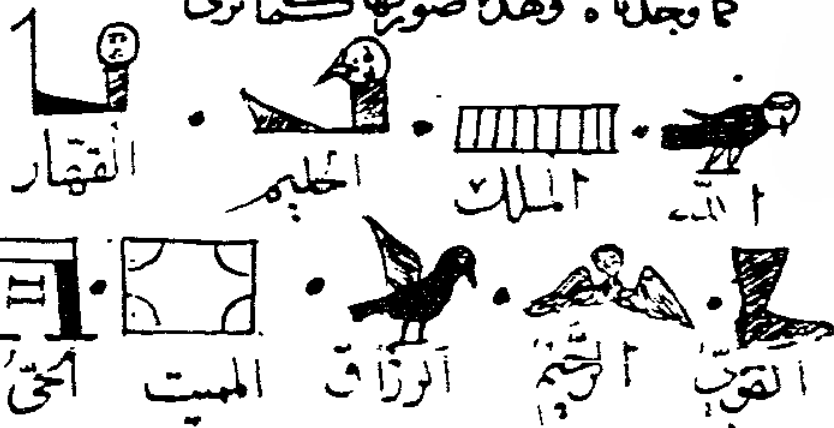 كما وجدنا ه وهذه صورتها كما ترى
الله الملك الحليم القهار
القوىّ الرَّحيم الرزاق المميت الحىّ